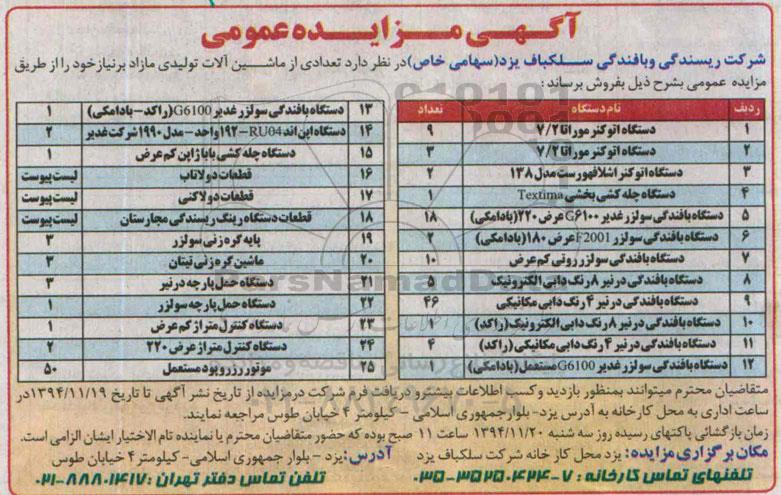 آگهـی مـزایـده عمومی
شرکت ریسندگی وبافندگی سلکباف یزد(سهامی خاص)در نظر دارد تعدادی از ماشین آلات تولیدی مازاد برنیازخود را از طریق
مزایده عمومی بشرح ذیل بفروش برساند:
ردیف نام دستگاه تعداد
۱ دستگاه اتوکنر موراتا ۷/۲ ۹
۲ دستگاه اتوکنر موراتا ۷/۲ ۳
۳ دستگاه اتوکنر اشلافهورست مدل ۱۳۸ ۲
۴ دستگاه چله کشی بخشی Textima ۱
۵ دستگاه بافندگی سولزر غدیر G۶۱۰۰ عرض ۲۲۰(بادامکی) ۱۸
۶ دستگاه بافندگی سولزر F2001 عرض ۱۸۰(بادامکی) ۲
۷ دستگاه بافندگی سولزر روتی کم عرض ۱۰
۸ دستگاه بافندگی درنیر ۸ رنگ دابی الکترونیک ۵
۹ دستگاه بافندگی درنیر ۴ رنگ دابی مکانیکی ۴۶
۱۰ دستگاه بافندگی درنیر ۸ رنگ دابی الکترونیک(راکد) ۱
۱۱ دستگاه بافندگی درنیر ۴ رنگ دابی مکانیکی (راکد) ۴
۱۲ دستگاه بافندگی سولزر غدیر G6100 مستعمل(بادامکی) ۱
۱۳ دستگاه بافندگی سولزر غدیر G6100(راکد-بادامکی) ۱
۱۴ دستگاه اپن اند RU04-۱۹۲واحد-مدل ۱۹۹۰ شرکت غدیر ۲
۱۵ دستگاه چله کشی بابا ژاپن کم عرض ۱
۱۶ قطعات دولاتاب لیست پیوست
۱۷ قطعات دولاکنی لیست پیوست
۱۸ قطعات دستگاه رینگ ریسندگی مجارستان لیست پیوست
۱۹ پایه گره زنی سولزر ۳
۲۰ ماشین گره زنی تیتان ۳
۲۱ دستگاه حمل پارچه درنیر ۳
۲۲ دستگاه حمل پارچه سولزر ۱
۲۳ دستگاه کنترل متراژ کم عرض ۱
۲۴ دستگاه کنترل متراژ عرض ۲۲۰ ۲
۲۵ موتور رزرو پود مستعمل ۵۰
متقاضیان محترم میتوانند بمنظور بازدید و کسب اطلاعات بیشتر و دریافت فرم شرکت درمزایده از تاریخ نشر آگهی تا تاریخ ۱۳۹۴/۱۱/۱۹در
ساعت اداری به محل کارخانه به آدرس یزد- بلوار جمهوری اسلامی - کیلومتر ۴ خیابان طوس مراجعه نمایند.
زمان بازگشائی پاکتهای رسیده روز سه شنبه ۱۳۹۴/۱۱/۲۰ ساعت ۱۱ صبح بوده که حضور متقاضیان محترم یا نماینده تام الاختیار ایشان الزامی است.
مکان برگزاری مزایده: یزد محل کار خانه شرکت سلکباف یزد آدرس: یزد - بلوار جمهوری اسلامی- کیلومتر ۴ خیابان طوس
تلفنهای تماس کارخانه: ۷-۳۵۲۵۰۴۲۴-۰۳۵ تلفن تماس دفتر تهران: ۸۸۸۰۱۴۱۷-۰۲۱